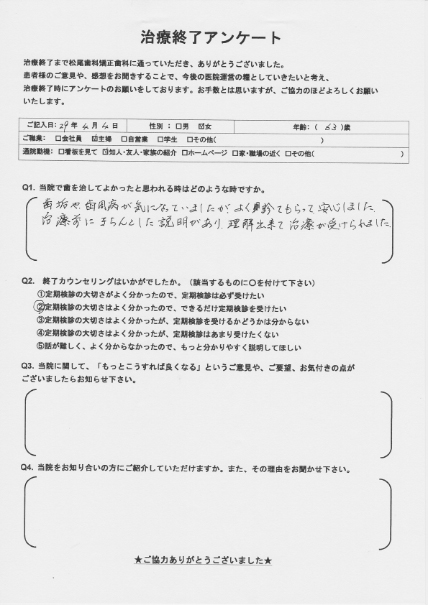 治療終了アンケート
治療終了まで松尾歯科矯正歯科に通っていただき、ありがとうございました。
患者様のご意見や、感想をお聞きすることで、今後の医院運営の糧としていきたいと考え、
治療終了時にアンケートのお願いをしております。お手数とは思いますが、ご協力のほどよろしくお願い
いたします。
ご記入日: 29年 4月 4日 性別: □男 ☑女 年齢: ( 63 )歳
ご職業: □会社員 ☑主婦 □自営業 □学生 □その他( )
通院動機: □看板を見て ☑知人・友人・家族の紹介 □ホームページ □家・職場の近く □その他( )
Q1. 当院で歯を治してよかったと思われる時はどのような時ですか。
歯垢や歯周病が気になっていましたが、よく見診てもらって安心しました。
治療前にきちんとした説明があり、理解出来て治療が受けられました。
Q2. 終了カウンセリングはいかがでしたか。(該当するものに○を付けて下さい)
①定期検診の大切さがよく分かったので、定期検診は必ず受けたい
②定期検診の大切さはよく分かったので、できるだけ定期検診を受けたい
③定期検診の大切さはよく分かったが、定期検診を受けるかどうかは分からない
④定期検診の大切さはよく分かったが、定期検診はあまり受けたくない
⑤話が難しく、よく分からなかったので、もっと分かりやすく説明してほしい
Q3. 当院に関して、「もっとこうすれば良くなる」というご意見や、ご要望、お気付きの点が
ございましたらお知らせ下さい。
Q4. 当院をお知り合いの方にご紹介していただけますか。また、その理由をお聞かせ下さい。
★ご協力ありがとうございました★